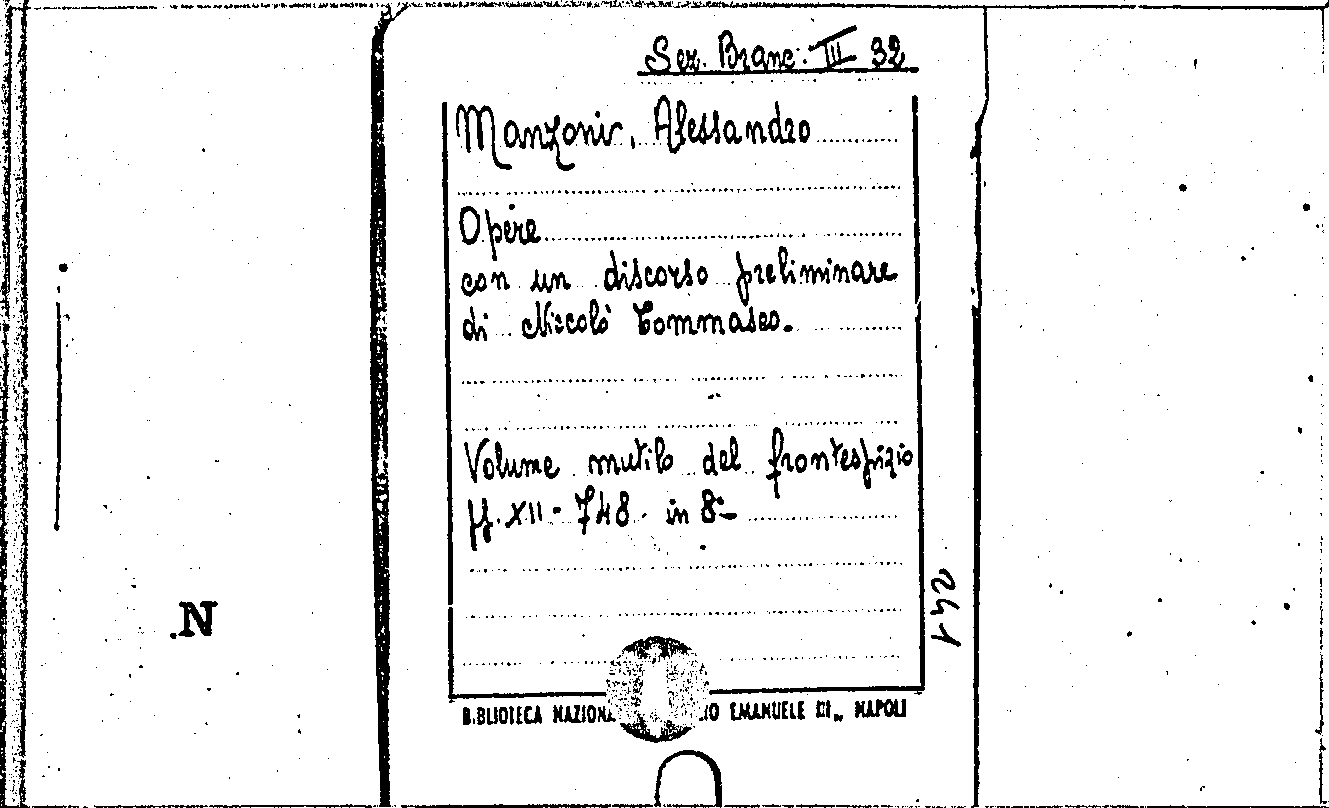 Sez. Branc. III 32
Manzoni, Alessandro
Opere
con un discorso preliminare
di Niccolò Tommaseo.
Volume mutilo del frontespizio
pp. XII - 748 - in 8º
241
.N
BIBLIOTECA EMANUELE III„ NAPOLI